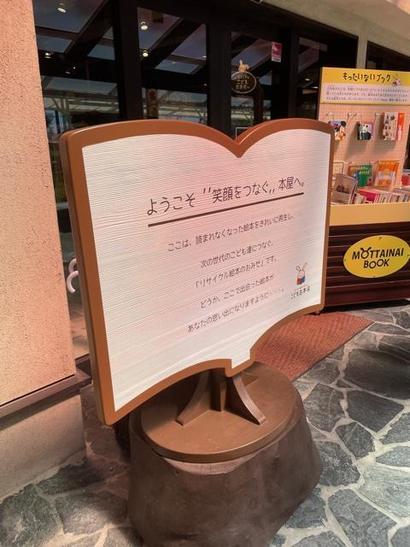 ようこそ "笑顔をつなぐ" 本屋へ。
ここは、読まれなくなった絵本をきれいに再生し、
次の世代のこども達につなぐ、
「リサイクル絵本のおみせ」です。
どうか、ここで出会った絵本が
あなたの思い出になりますように
もったいないブック
MOTTAINAI
BOOK